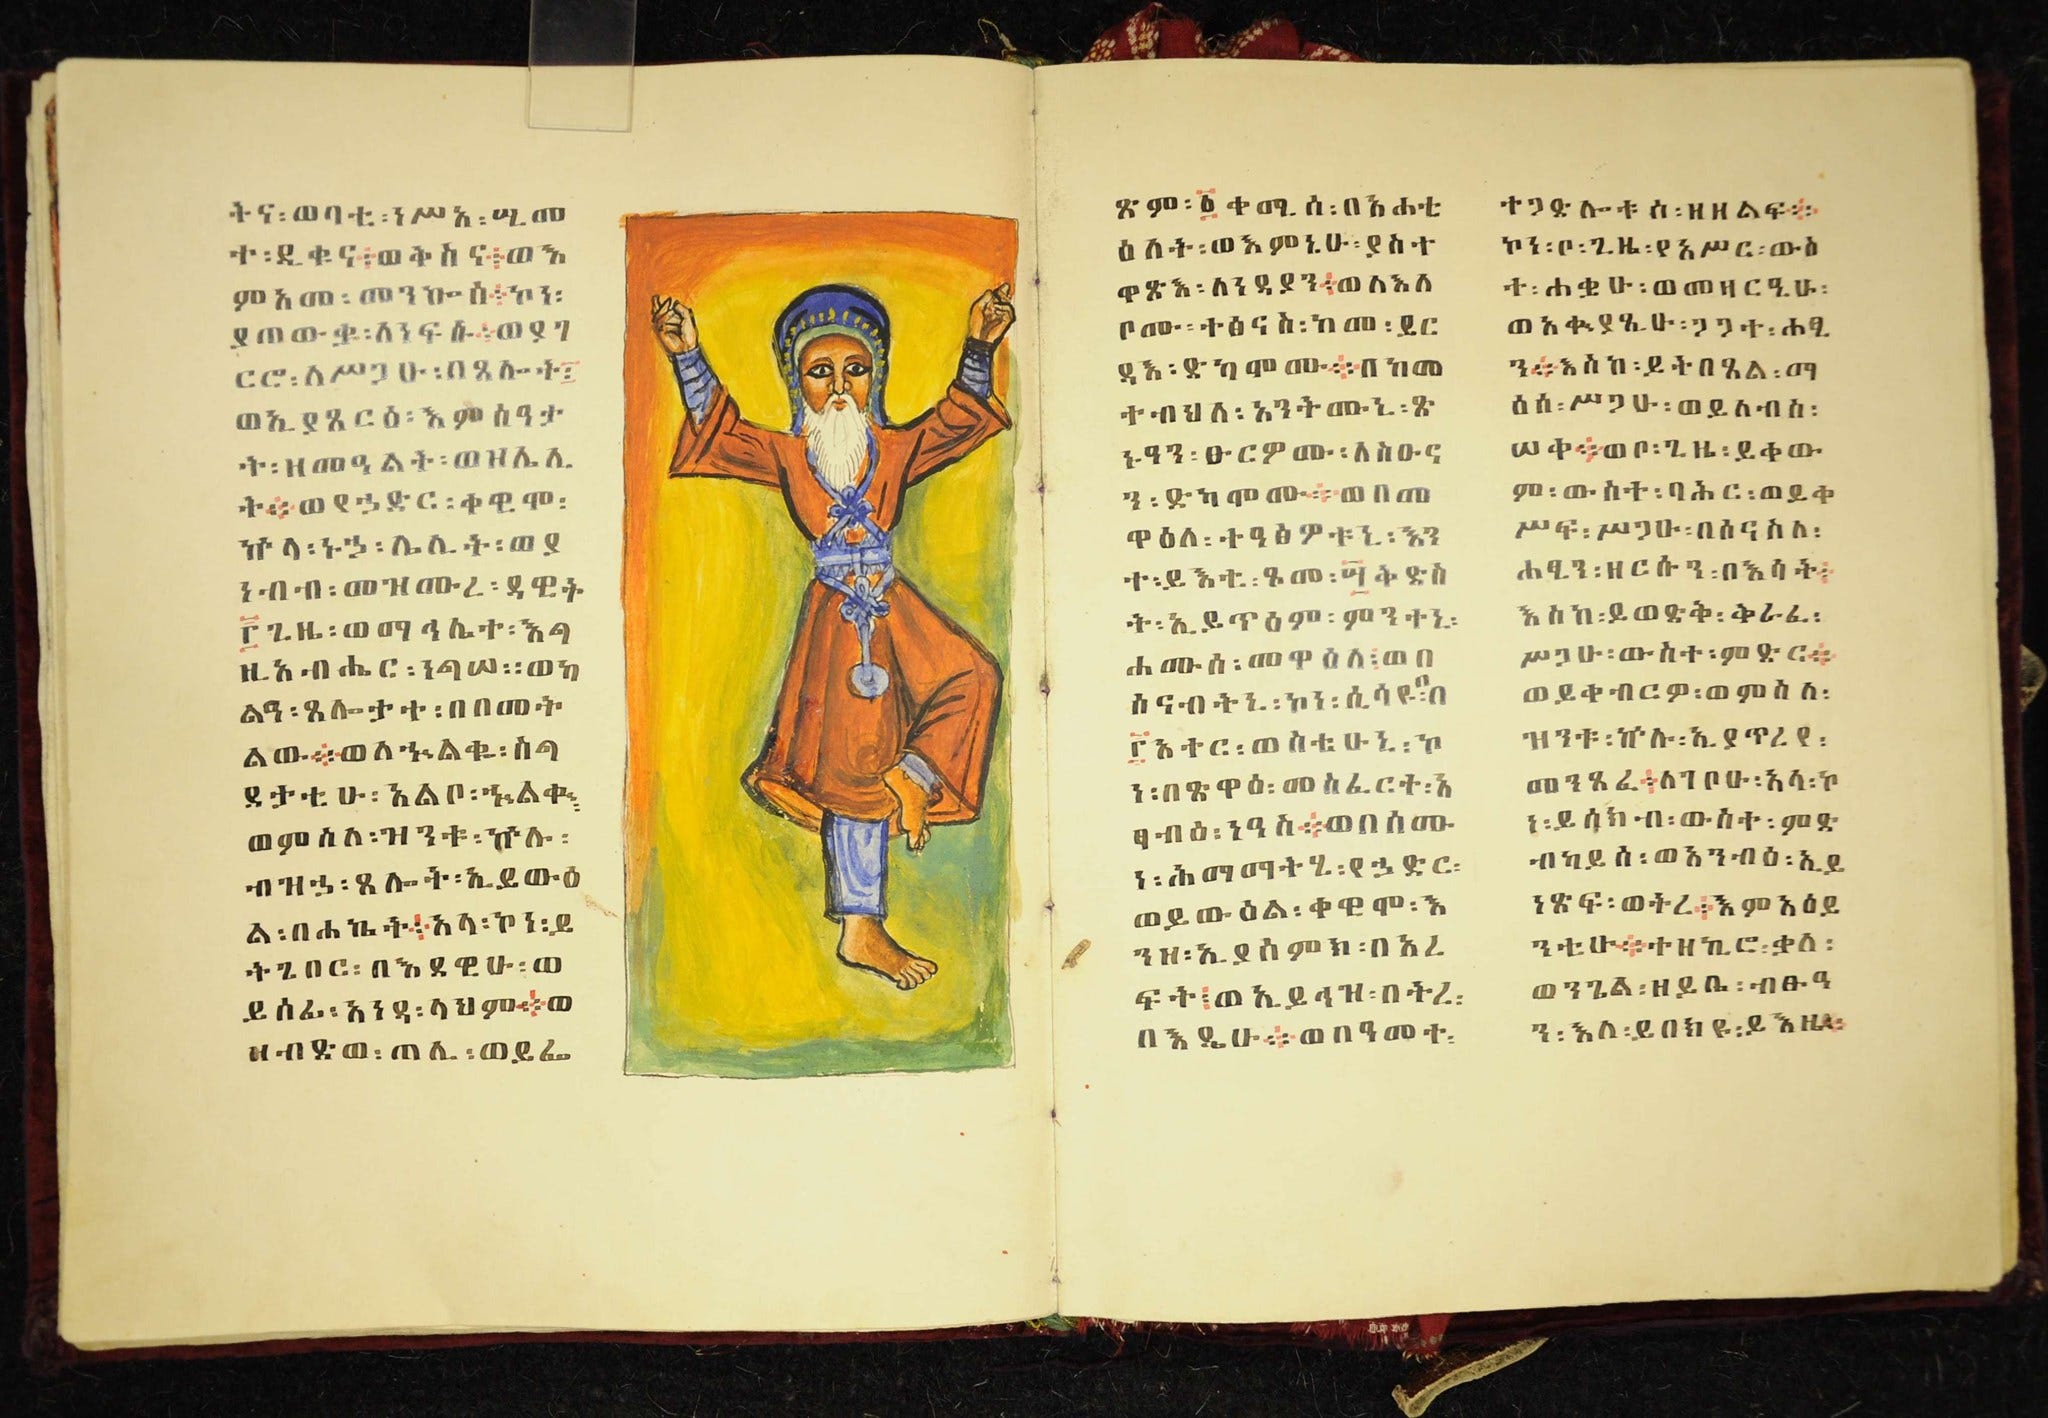 ትና፡ወባቲ፡ነሥአ፡ሢመ
ተ፡ዲቁና፨ወቅስና፨ወእ
ምአመ፡መንኰሰ፨ኮነ፡
ያጠውቃ፡ለነፍሱ፨ወያግ
ርሮ፡ለሥጋሁ፡በጸሎት፤
ወኢያጸርዕ፡እምሰዓታ
ት፡ዘመዓልት፡ወዘሌሊ
ት፨ወየኃድር፡ቀዊሞ፡
ኵላ፡ኑኃ፡ሌሊት፡ወያ
ነብብ፡መዝሙረ፡ዳዊት
፫ጊዜ፡ወማኅሌተ፡እግ
ዚአብሔር፡ነግሠ፡፡ወካ
ልዓ፡ጸሎታተ፡በበመት
ልው፨ወለኍልቁ፡ስግ
ደታቲሁ፡አልቦ፡ኍልቍ፤
ወምስለ፡ዝንቱ፡ኵሉ፡
ብዝኃ፡ጸሎት፡ኢይውዕ
ል፡በሐኬት፨አላ፡ኮነ፡ይ
ትጌበር፡በእደዊሁ፡ወ
ይሰፊ፡አንዳ፡ላህም፨ወ
ዘብድወ፡ጠሊ፡ወይፌ
ጽም፡፩ቀሚሰ፡በአሐቲ
ዕለት፡ወእምኔሁ፡ያስተ
ዋጽእ፡ለነዳያን፨ወለእለ
ቦሙ፡ተፅናስ፡ከመ፡ይር
ዳእ፡ድካሞሙ፨በከመ
ተብህለ፡አንትሙኒ፡ጽ
ኑዓን፡ፁርዎሙ፡ለስዑና
ን፡ድካሞሙ፨ወበመ
ዋዕለ፡ተዓፅዎቱኒ፡እን
ተ፡ይእቲ፡ጾመ፡፵ቅድስ
ት፡ኢይጥዕም፡ምንተኒ፡
ሐሙሰ፡መዋዕለ፤ወበ
ሰናብትኒ፡ኮነ፡ሲሳዩ፡በበ
፫አተር፡ወስቴሁኒ፡ኮ
ነ፡በጽዋዕ፡መስፈርት፡አ
ፃብዕ፡ንዓስ፨ወበሰሙ
ነ፡ሕማማትሂ፡የኃድር፡
ወይውዕል፡ቀዊሞ፡እ
ንዘ፡ኢያሰምክ፡በአረ
ፍት፤ወኢይኅዝ፡በትረ፡
በእዴሁ፨ወበዓመተ፡
ተጋድሎቱሰ፡ዘዘልፍ፨
ኮነ፡ቦ፡ጊዜ፡የአሥር፡ውስ
ተ፡ሐቋሁ፡ወመዛርዒሁ፡
ወአቍያጺሁ፡ጋጋተ፡ሐፂ
ን፨እስከ፡ይትበጸል፡ማ
ዕሰ፡ሥጋሁ፡ወይለብስ፡
ሠቀ፨ወቦ፡ጊዜ፡ይቀው
ም፡ውስተ፡ባሕር፡ወይቀ
ሥፍ፡ሥጋሁ፡በሰናስለ፡
ሐፂን፡ዘርሱን፡በእሳት፨
እስከ፡ይወድቅ፡ቅራፈ፡
ሥጋሁ፡ውስተ፡ምድር፨
ወይቀብርዎ፡ወምስለ፡
ዝንቱ፡ኵሉ፡ኢያጥረየ፡
መንጸፈ፨ለገቦሁ፡አላ፡ኮ
ነ፡ይሰክብ፡ውስተ፡ምድ
ብካይሰ፡ወአንብዕ፡ኢይ
ነጽፍ፡ወትረ፨እምአዕይ
ንቲሁ፨ተዘኪሮ፡ቃለ፡
ወንጌል፡ዘይቤ፡ብፁዓ
ን፡እለ፡ይበክዩ፡ይእዜ፨